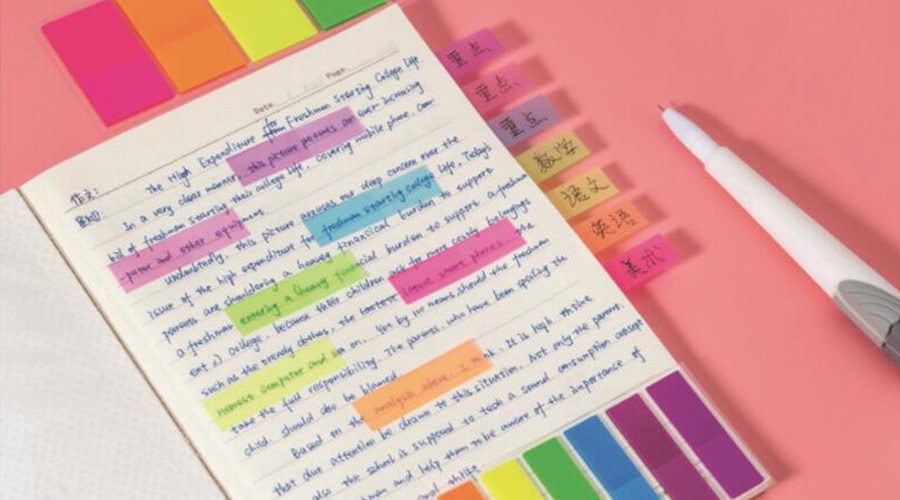 Date Page
The High Expenditure for Freshman Starting College Life.
作文:
In a very clear manner this picture presents an ever-increasing
bil of freshman starting their college life, covering mobile phone, com
-puter and other equipment.
undoubtedly, this picture arouses our deep concern over the
issue of the high expenditure for freshman starting college life. Today's
parents are shouldering a heavy financial burden to support
a freshman entering a (heavy financial burden to support a freshm
ent,) college, because their children ask for more costly belongings
such as the trendy clothes, the
Honest computer and so on. Yet by no means should the freshman
take the full responsibility. The parents, who have been spoiling the
child, should also be blamed.
Based on the analysis above, I think it is high time
that due attention be drawn to this situation. Not only the parents,
also the school is supposed to teach a sound consumption concept
and help them to be aware of the importance of
重点
重点
重点
数学
语文
英语
美术